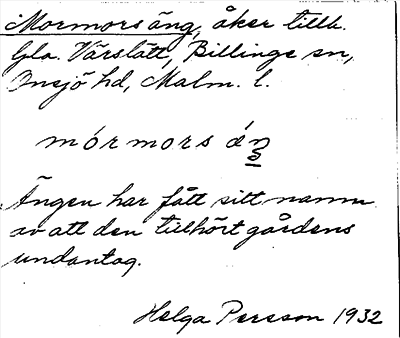 Mormorsäng, åker tillh.
Gla. Vårslätt, Billinge sn,
Onsjö hd, Malm. l.
mórmors áŋ
Ängen har fått sitt namn
av att den tillhört gårdens
undantag.
Helga Persson 1932